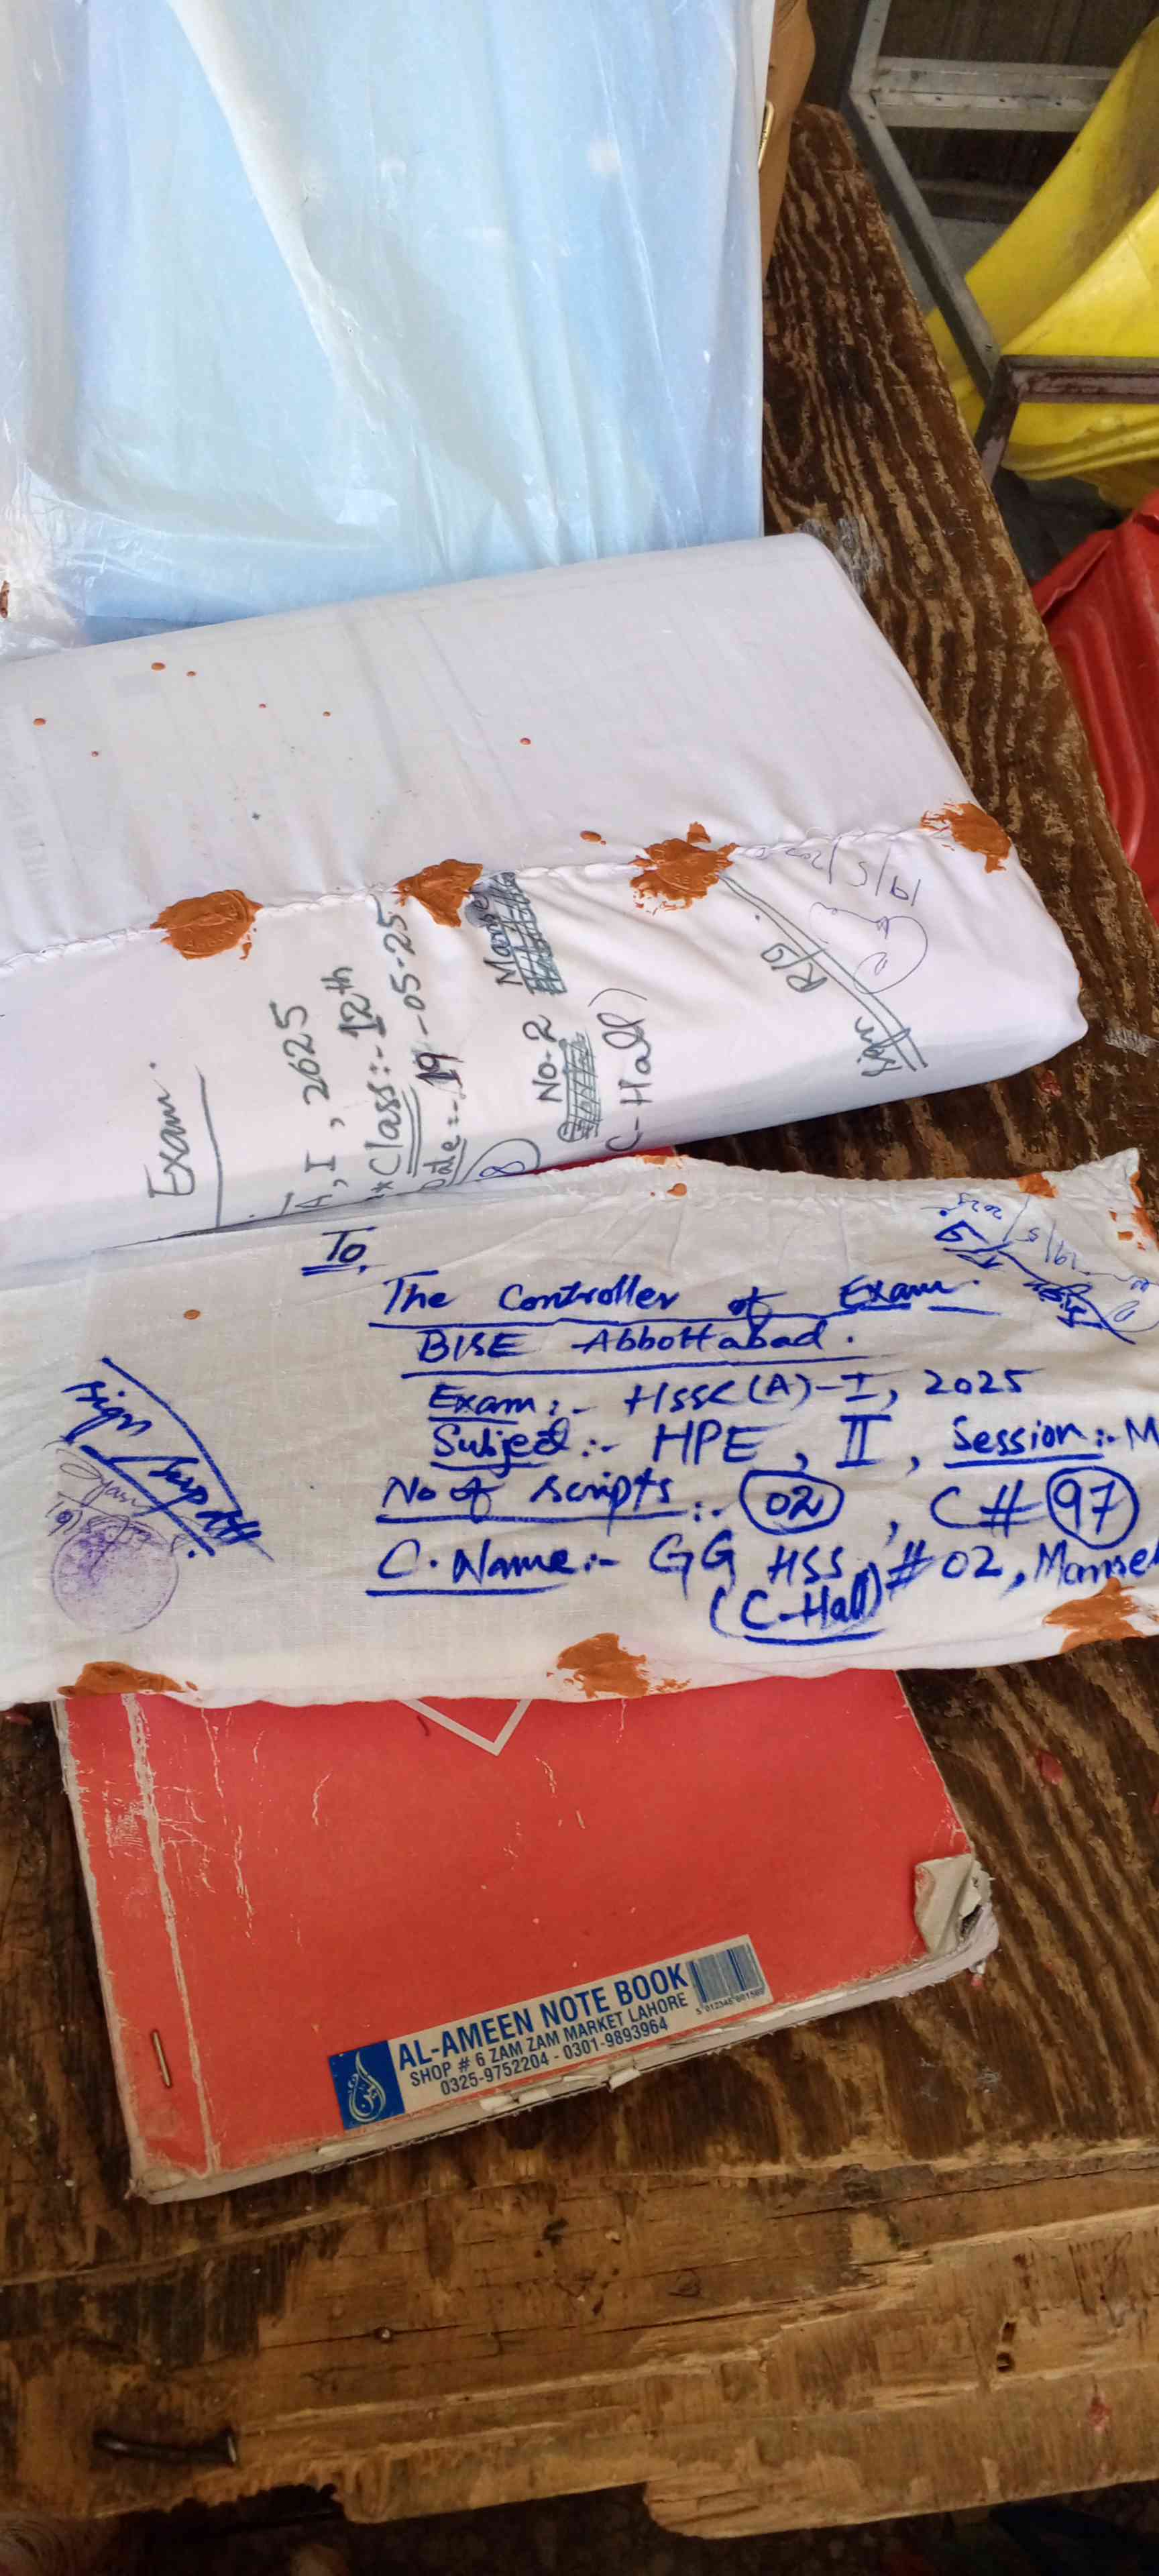 Exam.
A, I, 2025
Class:- 12th
Date:- 19-05-25
No. 2
C-Hall)
R/I
19/5/2025
To,
The Controller of Exam.
BISE Abbottabad.
Exam:- HSSC(A)-I, 2025
Subject:- HPE, II, Session:- M
No of scripts:- 02, C# 97
C. Name:- GG HSS, #02, Manse
(C-Hall)
Sign / Supdtt
AL-AMEEN NOTE BOOK
SHOP # 6 ZAM ZAM MARKET LAHORE
0325-9752204 - 0301-9893964